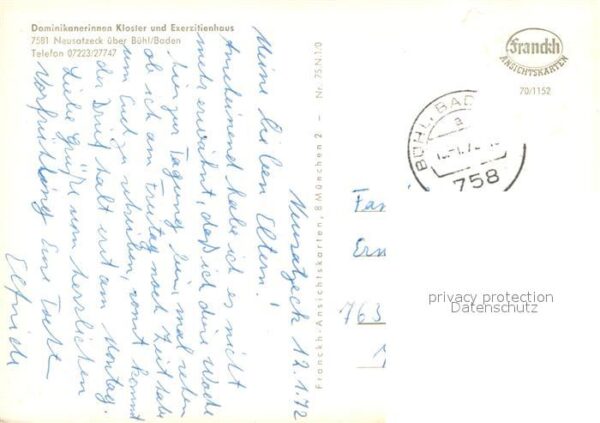 Dominikanerinnen Kloster und Exerzitienhaus
7581 Neusatzeck über Bühl/Baden
Telefon 07223/27747
Neusatzeck 12.1.72
Meine lieben Eltern!
Anscheinend habe ich es nicht
mehr erwähnt, daß ich diese Woche
hier zur Tagung bin, mal sehen
ob ich am Freitag noch Zeit habe
um Euch zu schreiben, sonst kommt
der Brief halt erst am Montag.
Liebe Grüße vom herrlichen
Vorfrühling Eure
Elfriede
Franckh-Ansichtskarten, 8 München 2 - Nr. 75 N 1/0
Franckh
ANSICHTSKARTEN
70/1152
BÜHL, BAD
a
758
Fa
Ern
763
privacy protection
Datenschutz